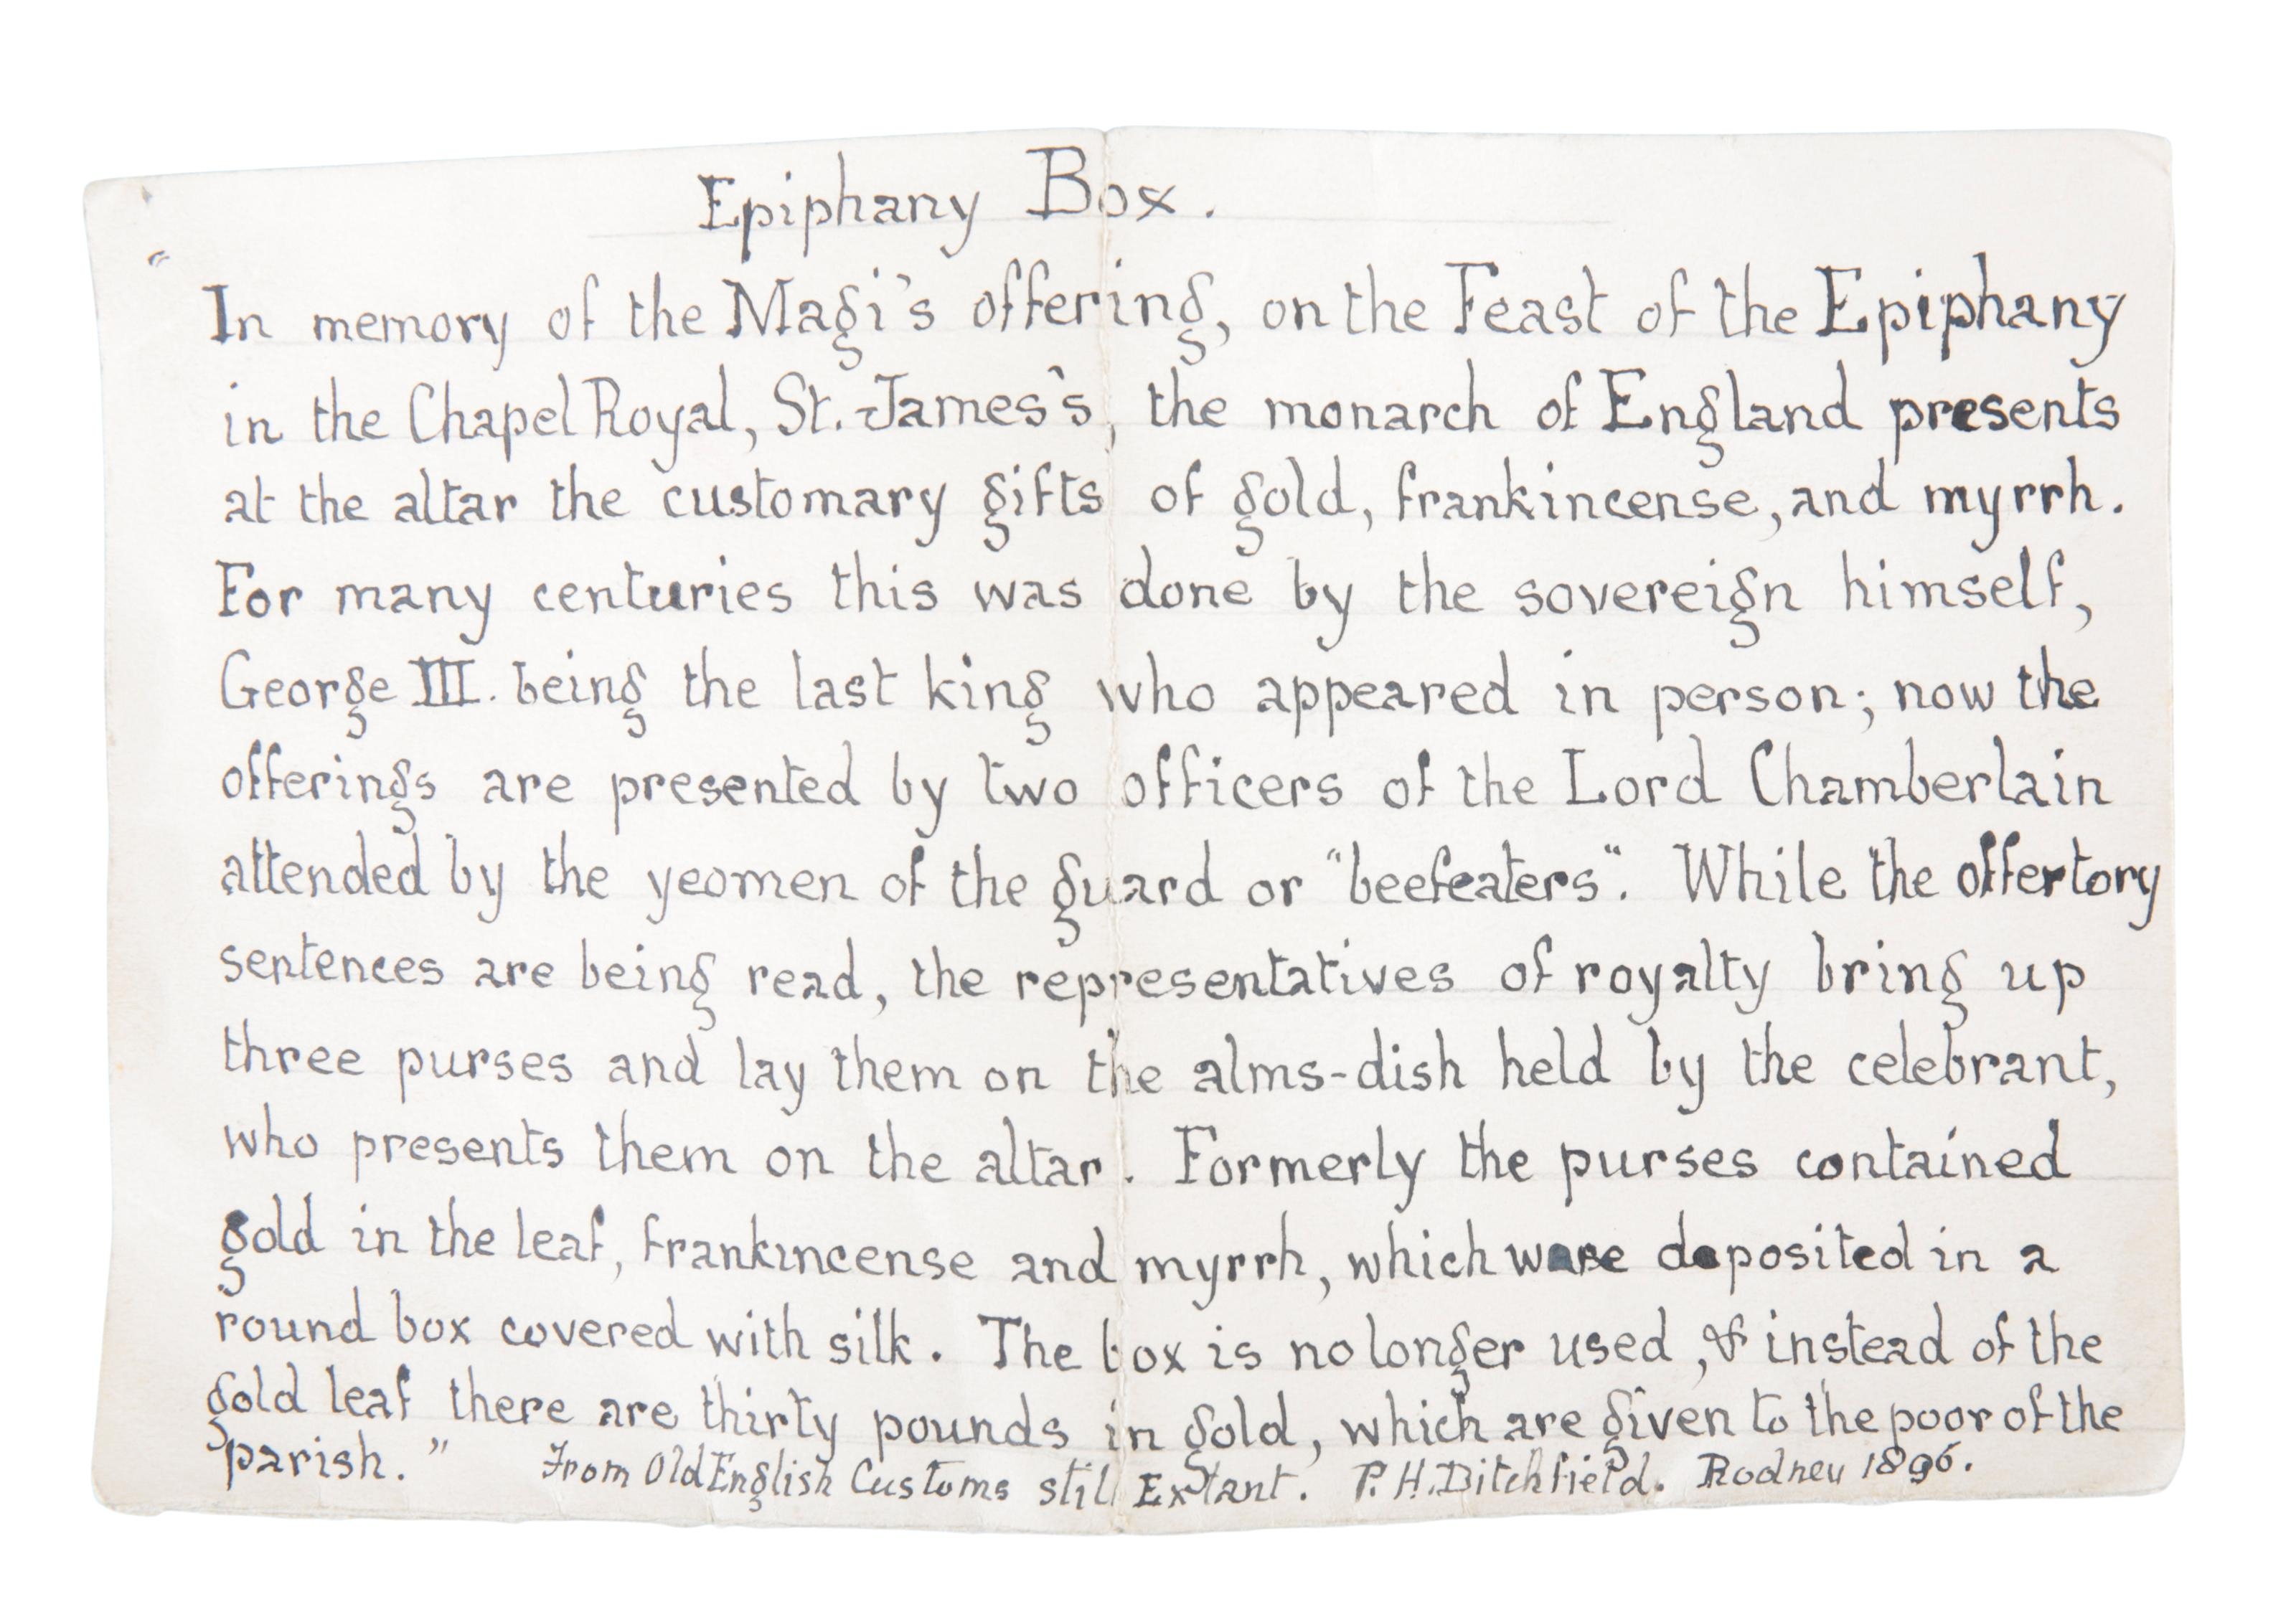 Epiphany Box.
"
In memory of the Magi's offering, on the Feast of the Epiphany
in the Chapel Royal, St. James's, the monarch of England presents
at the altar the customary gifts of gold, frankincense, and myrrh.
For many centuries this was done by the sovereign himself,
George III. being the last king who appeared in person; now the
offerings are presented by two officers of the Lord Chamberlain
attended by the yeomen of the guard or "beefeaters". While the offertory
sentences are being read, the representatives of royalty bring up
three purses and lay them on the alms-dish held by the celebrant,
who presents them on the altar. Formerly the purses contained
gold in the leaf, frankincense and myrrh, which were deposited in a
round box covered with silk. The box is no longer used, & instead of the
gold leaf there are thirty pounds in gold, which are given to the poor of the
parish." From Old English Customs still Extant. P. H. Ditchfield. Rodney 1896.